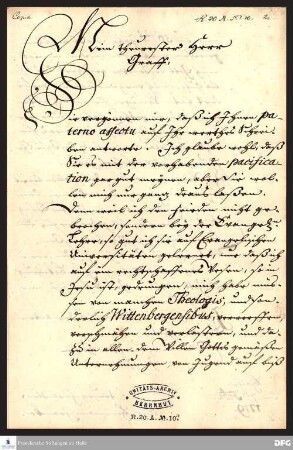 Copia
R. 20. A. No 10. 2.
Mein theurester Herr
Graff,
Sie vergönnen mir, daß ich Ihnen pa-
terno affectu auf Ihr werthes Schrei-
ben antworte. Ich glaube wohl, daß
Sie es mit der vorhabenden pacifica-
tion gar gut meynen, aber Sie wol-
len mich nur gantz draus laßen.
Denn weil ich den Frieden nicht ge-
brochen, sondern bey der Evangel.
Lehre, so gut ich sie auf Evangelischen
Universitäten gelernet, nur daß ich
auf ein rechtschaffenes Wesen, so in
Jesu ist, gedrungen, mich habe müs-
sen von manchen Theologis, und son-
derlich Wittenbergensibus,
verschmähen und verlästern, und da-
zu in allen dem Willen Gottes gemäßen
Unternehmungen von Jugend auf biß
UNITÄTS-ARCHIV
HERRNHUT
R. 20. A. No. 10.
Franckesche Stiftungen zu Halle
DFG